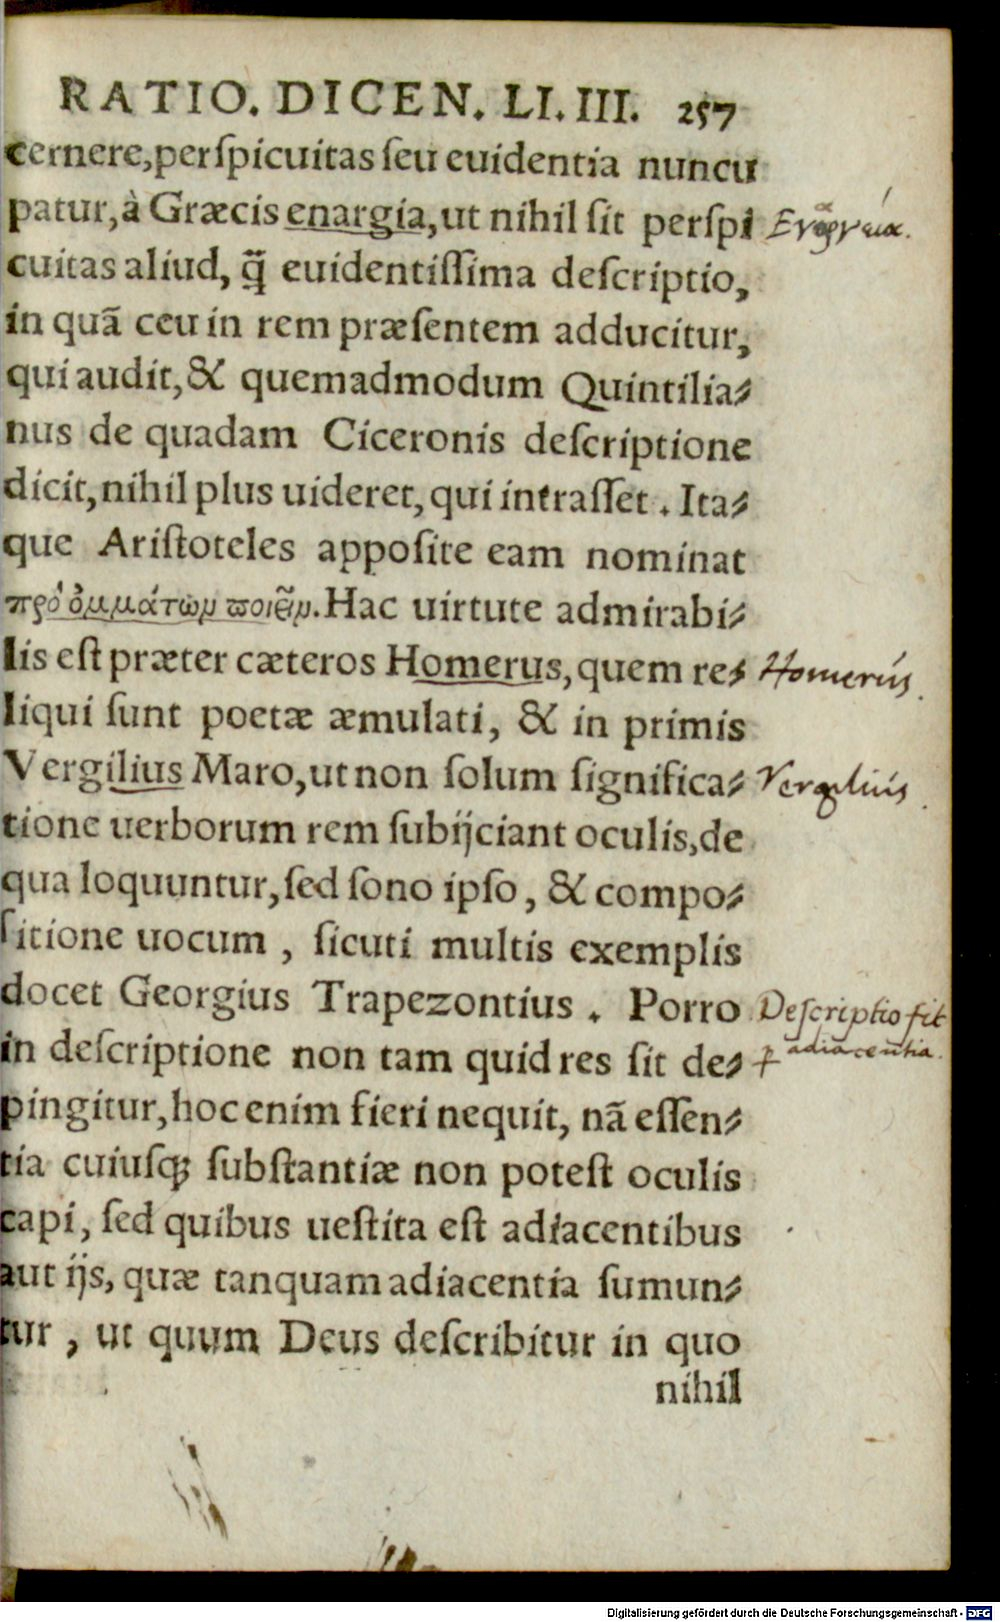 RATIO. DICEN. LI. III. 257
cernere, perſpicuitas ſeu euidentia nuncu
patur, à Græcis enargía, ut nihil ſit perſpi
Ἐνάργεια.
cuitas aliud, q̃ euidentiſſima deſcriptio,
in quã ceu in rem præſentem adducitur,
qui audit, & quemadmodum Quintilia⸗
nus de quadam Ciceronis deſcriptione
dicit, nihil plus uideret, qui intraſſet. Ita⸗
que Ariſtoteles appoſite eam nominat
πρὸ ὀμμάτων ποιεῖν. Hac uirtute admirabi⸗
lis eſt præter cæteros Homerus, quem re⸗
Homerus.
liqui ſunt poetæ æmulati, & in primis
Vergilius Maro, ut non ſolum ſignifica⸗
Vergilius.
tione uerborum rem ſubijciant oculis, de
qua loquuntur, ſed ſono ipſo, & compo⸗
ſitione uocum, ſicuti multis exemplis
docet Georgius Trapezontius. Porro
Deſcriptio fit
in deſcriptione non tam quid res ſit de⸗
ꝑ adiacentia.
pingitur, hoc enim fieri nequit, nã eſſen⸗
tia cuiuſq; ſubſtantiæ non poteſt oculis
capi, ſed quibus ueſtita eſt adiacentibus
aut ijs, quæ tanquam adiacentia ſumun⸗
tur, ut quum Deus deſcribitur in quo
nihil
Digitalisierung gefördert durch die Deutsche Forschungsgemeinschaft - DFG